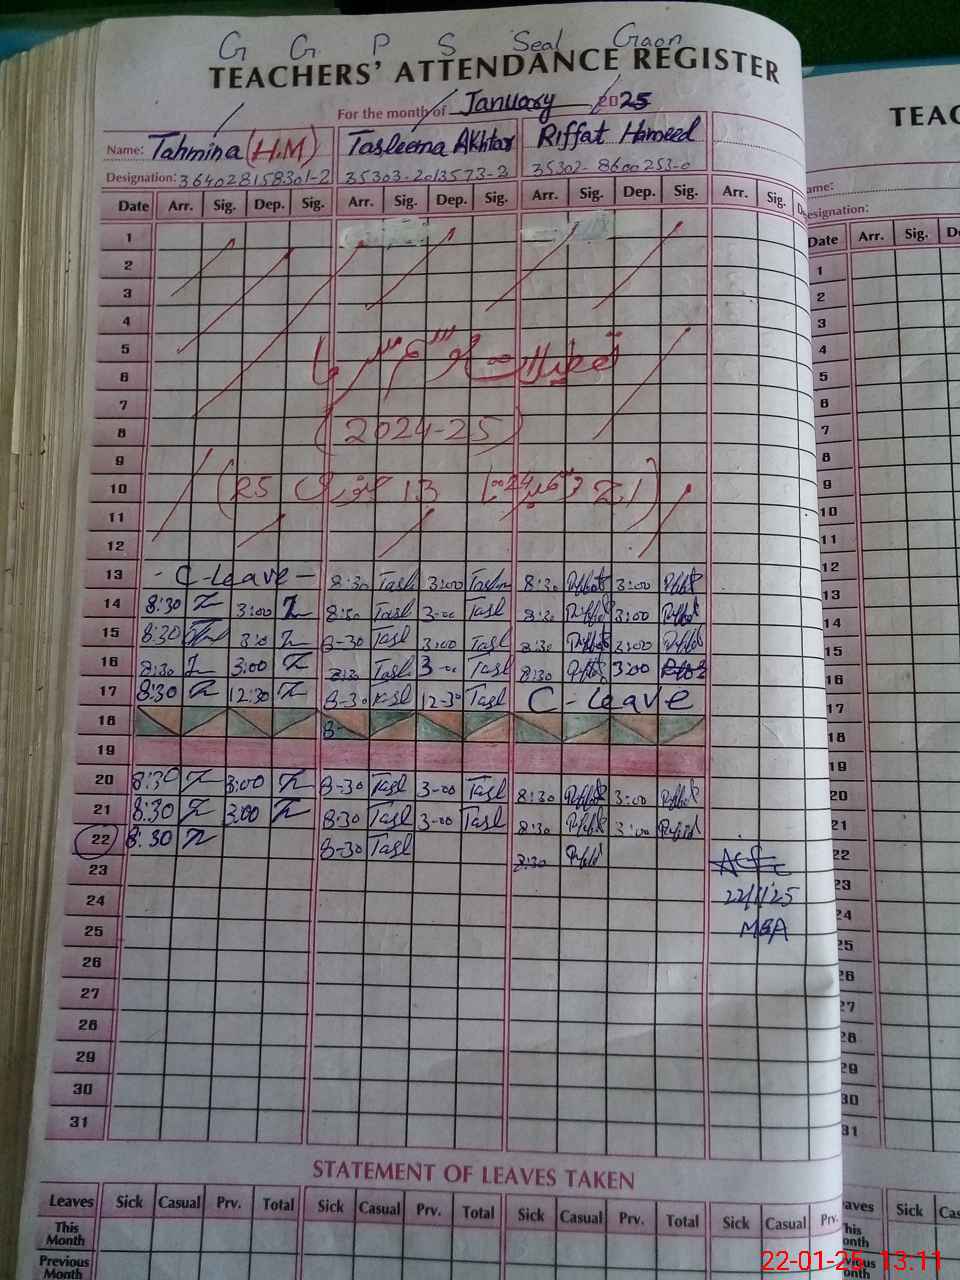 G G P S Seal Gaon
TEACHERS' ATTENDANCE REGISTER
For the month of January 2025
Name: Tahmina (H.M) Tasleema Akhtar Riffat Hameed
Designation: 35303-2013573-2 35302-8600253-0
Date Arr. Sig. Dep. Sig. Arr. Sig. Dep. Sig. Arr. Sig. Dep. Sig. Arr. Sig.
1
2
3
4
5
تعطیلات موسم سرما
6
7
8 (2024-25)
9
10
11
12
13 - C-Leave - 8:30 Tasl 3:00 8:30 Riffat 3:00 Riffat
14 8:30 3:00 8:30 Tasl 3-00 Tasl 8:30 Riffat 3:00 Riffat
15 8:30 3:0 8-30 Tasl 3:00 Tasl 8:30 Riffat 3:00 Riffat
16 8:30 3:00 8:30 Tasl 3-00 Tasl 8:30 Riffat 3:00
17 8:30 12:30 8-30 Tasl 12-30 Tasl C-Leave
18 8-
19
20 8:30 3:00 8-30 Tasl 3-00 Tasl 8:30 Riffat 3:00 Riffat
21 8:30 3:00 8:30 Tasl 3-00 Tasl 8:30 Riffat 3:00
22 8:30 8-30 Tasl 8:30
23
24 22/1/25
25 MEA
26
27
28
29
30
31
STATEMENT OF LEAVES TAKEN
Leaves Sick Casual Prv. Total Sick Casual Prv. Total Sick Casual Prv. Total Sick Casual Prv.
This Month
Previous Month
TEAC
ame:
esignation:
Date Arr. Sig. De
1
2
3
4
5
6
7
8
9
10
11
12
13
14
15
16
17
18
19
20
21
22
23
24
25
26
27
28
29
30
31
aves Sick Cas
his
onth
vious
onth
22-01-25 13:11